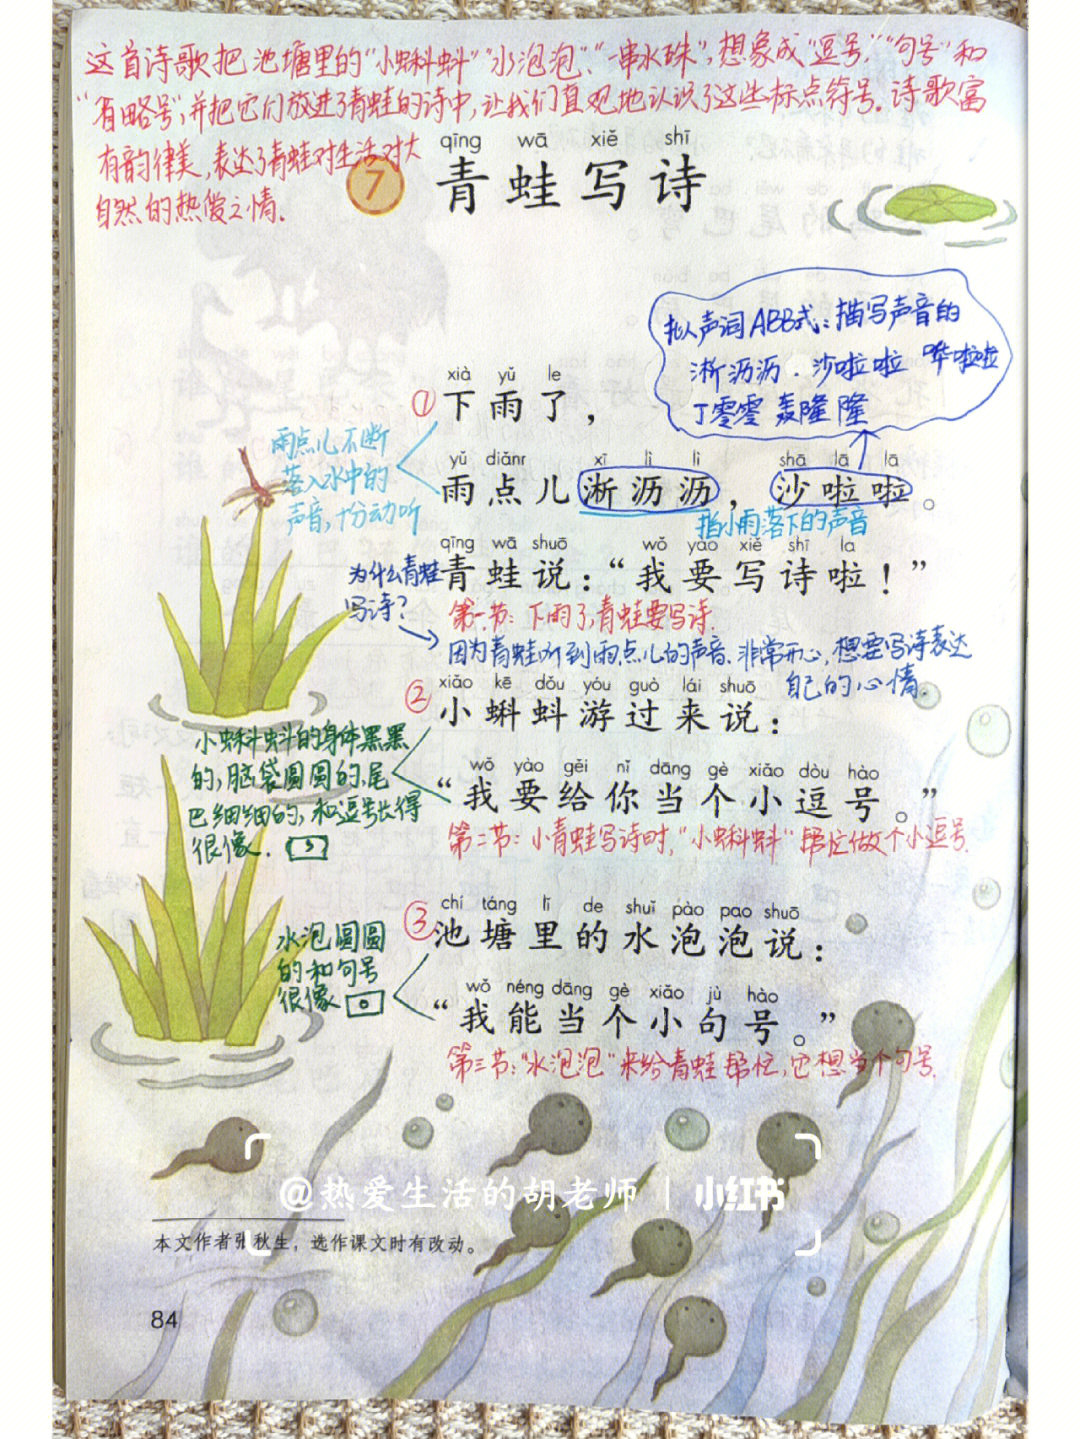 这首诗歌把池塘里的“小蝌蚪”“水泡泡”、“一串水珠”，想象成“逗号”“句号”和
“省略号”，并把它们放进了青蛙的诗中，让我们直观地认识了这些标点符号。诗歌富
有韵律美，表达了青蛙对生活对大
自然的热爱之情．
qīng wā xiě shī
7 青蛙写诗
拟声词ABB式：描写声音的
淅沥沥．沙啦啦 哗啦啦
丁零零 轰隆隆
xià yǔ le
①下雨了，
雨点儿不断
落入水中的
声音，十分动听
yǔ diǎnr xī lì lì shā lā lā
雨点儿淅沥沥，沙啦啦。
指小雨落下的声音
qīng wā shuō wǒ yào xiě shī la
青蛙说：“我要写诗啦！”
为什么青蛙
写诗？
第一节：下雨了，青蛙要写诗．
因为青蛙听到雨点儿的声音．非常开心，想要写诗表达
自己的心情。
xiǎo kē dǒu yóu guò lái shuō
②小蝌蚪游过来说：
小蝌蚪的身体黑黑
的，脑袋圆圆的，尾
巴细细的，和逗号长得
很像． ，
wǒ yào gěi nǐ dāng gè xiǎo dòu hào
“我要给你当个小逗号。”
第二节：小青蛙写诗时，“小蝌蚪”帮忙做个小逗号．
chí táng lǐ de shuǐ pào pao shuō
③池塘里的水泡泡说：
水泡圆圆
的和句号
很像 。
wǒ néng dāng gè xiǎo jù hào
“我能当个小句号。”
第三节：“水泡泡”来给青蛙帮忙，它想当个句号．
@热爱生活的胡老师 | 小红书
本文作者张秋生，选作课文时有改动。
84